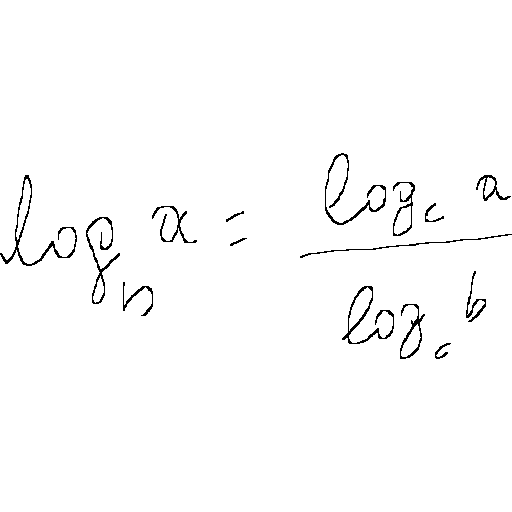 \log_n a = \frac{\log_c a}{\log_c b}